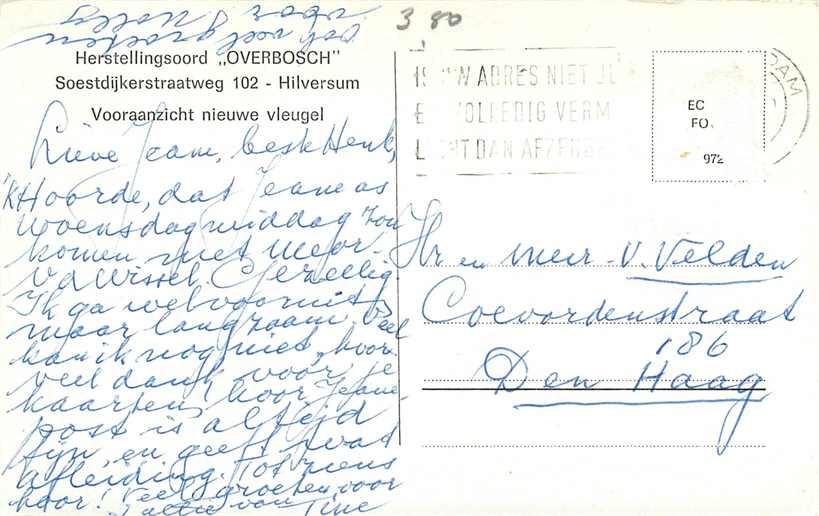 ook veel groeten
voor Nolly
3 80
Herstellingsoord „OVERBOSCH"
Soestdijkerstraatweg 102 - Hilversum
Vooraanzicht nieuwe vleugel
Lieve Jeam, beste Henk,
'k Hoorde, dat Jeame as
woensdagmiddag zou
komen met mevr.
v d Wissel Gezellig
Ik ga wel vooruit
maar langzaam Veel
kan ik nog niet, hoor
veel dank voor je
kaarten, hoor Jeame
post is altijd
fijn, en geeft wat
afleiding. Tot ziens
hoor! Veel groeten, voor
jullie van Tine
IS UW ADRES NIET JU
VOLLEDIG VERM
DAN AFZEND
DAM
972
Hr en mevr. v. Velden
Coevordenstraat
186
Den Haag